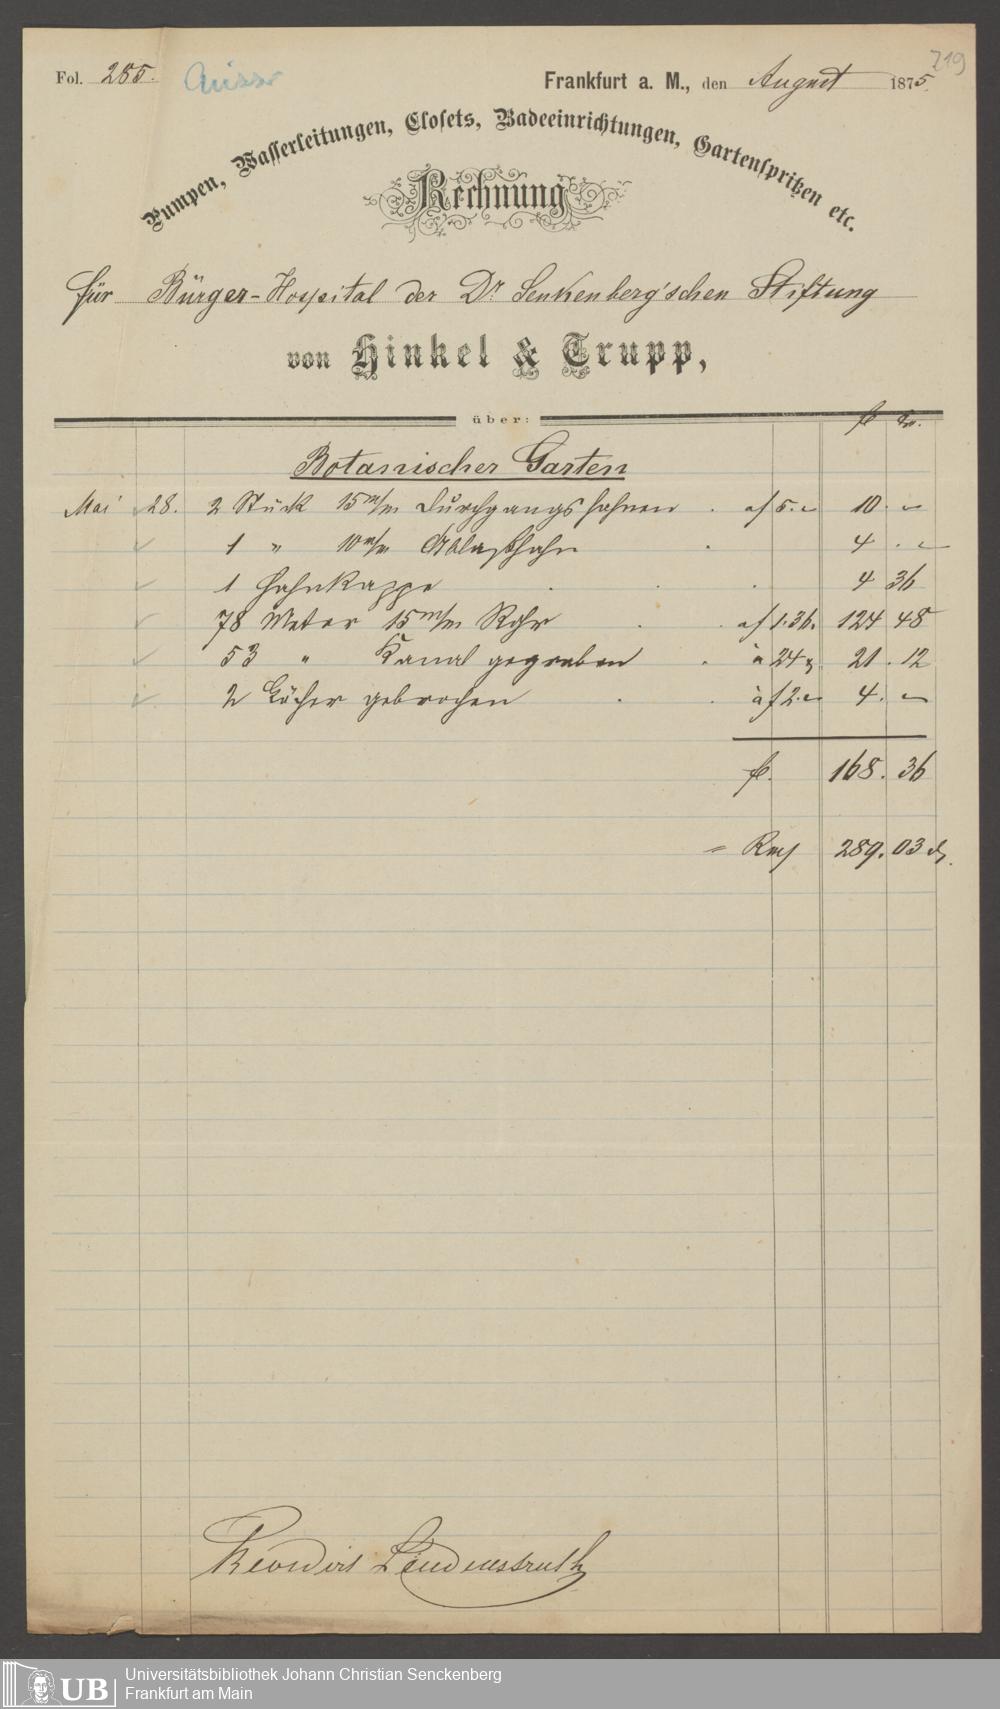 219
Fol. 255.
Frankfurt a. M., den August 1875.
Pumpen, Wasserleitungen, Closets, Badeeinrichtungen, Gartenspritzen etc.
Rechnung
für Bürger-Hospital der Dr. Senkenberg'schen Stiftung
von Hinkel & Trupp,
über:
fl Kr.
Botanischer Garten
Mai 28. 2 Stück 15 m/m Durchgangshahnen . af 5. - 10. -
1 " 10 m/m Ablaßhahn . 4 . -
1 Hahnkappe . . . 4 36
78 Meter 15 m/m Rohr . . af 1.36. 124 48
53 " Kanal gegraben . à 24 21 . 12
2 Löcher gebrochen . . à f 2. - 4. -
fl. 168. 36
= Rm 289. 03 d.
Lindenstruth
UB Universitätsbibliothek Johann Christian Senckenberg
Frankfurt am Main